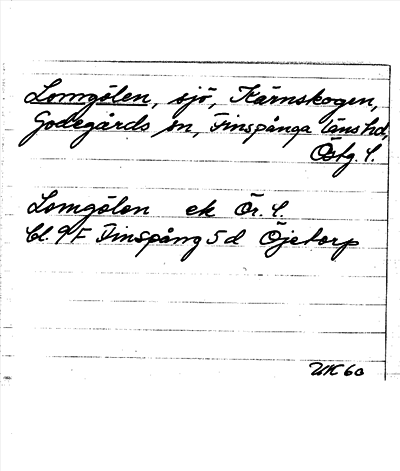 Lomgölen, sjö, Kärnskogen,
Godegårds sn, Finspånga läns hd,
Östg. l.
Lomgölen ek Ör. l.
bl. 9F Finspång 5 d Öjetorp
UK 60